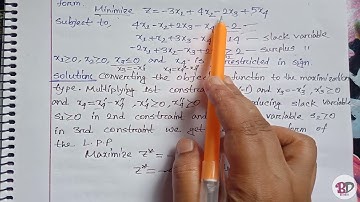 form Minimize Z = -3x₁ + 4x₂ - 2x₃ + 5x₄
subject to, 4x₁ - x₂ + 2x₃ - x₄ = -2
x₁ + x₂ + 3x₃ - x₄ 14 slack variable
-2x₁ + 3x₂ - x₃ ≥ 2 - surplus "
x₁ ≥ 0, x₂ ≥ 0, x₃ ≤ 0 and x₄ is unrestricted in sign.
Solution: Converting the function to the maximization
type. Multiplying 1st constraint -1) and x₃ = -x₃', x₃' ≥ 0
and x₄ = x₄' - x₄'', x₄' ≥ 0, x₄'' introducing slack variable
s₁ ≥ 0 in 2nd constraint and variable s₂ ≥ 0
in 3rd constraint we get form of
the L.P.P
Maximize Z* =
Z* = -
BD